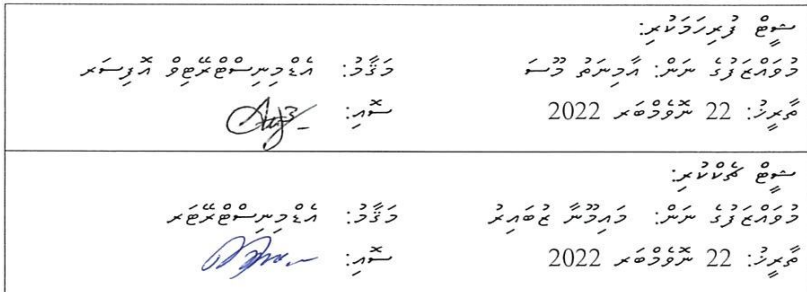 ޝީޓް ފުރިހަމަކުރި:
މުވައްޒަފުގެ ނަން: އާމިނަތު މޫސަ މަޤާމު: އެޑްމިނިސްޓްރޭޓިވް އޮފިސަރ
ތާރީޚު: 22 ނޮވެމްބަރ 2022 ސޮއި:
ޝީޓް ޗެކްކުރި:
މުވައްޒަފުގެ ނަން: މައިމޫނާ ޒުބައިރު މަޤާމު: އެޑްމިނިސްޓްރޭޓަރ
ތާރީޚު: 22 ނޮވެމްބަރ 2022 ސޮއި: